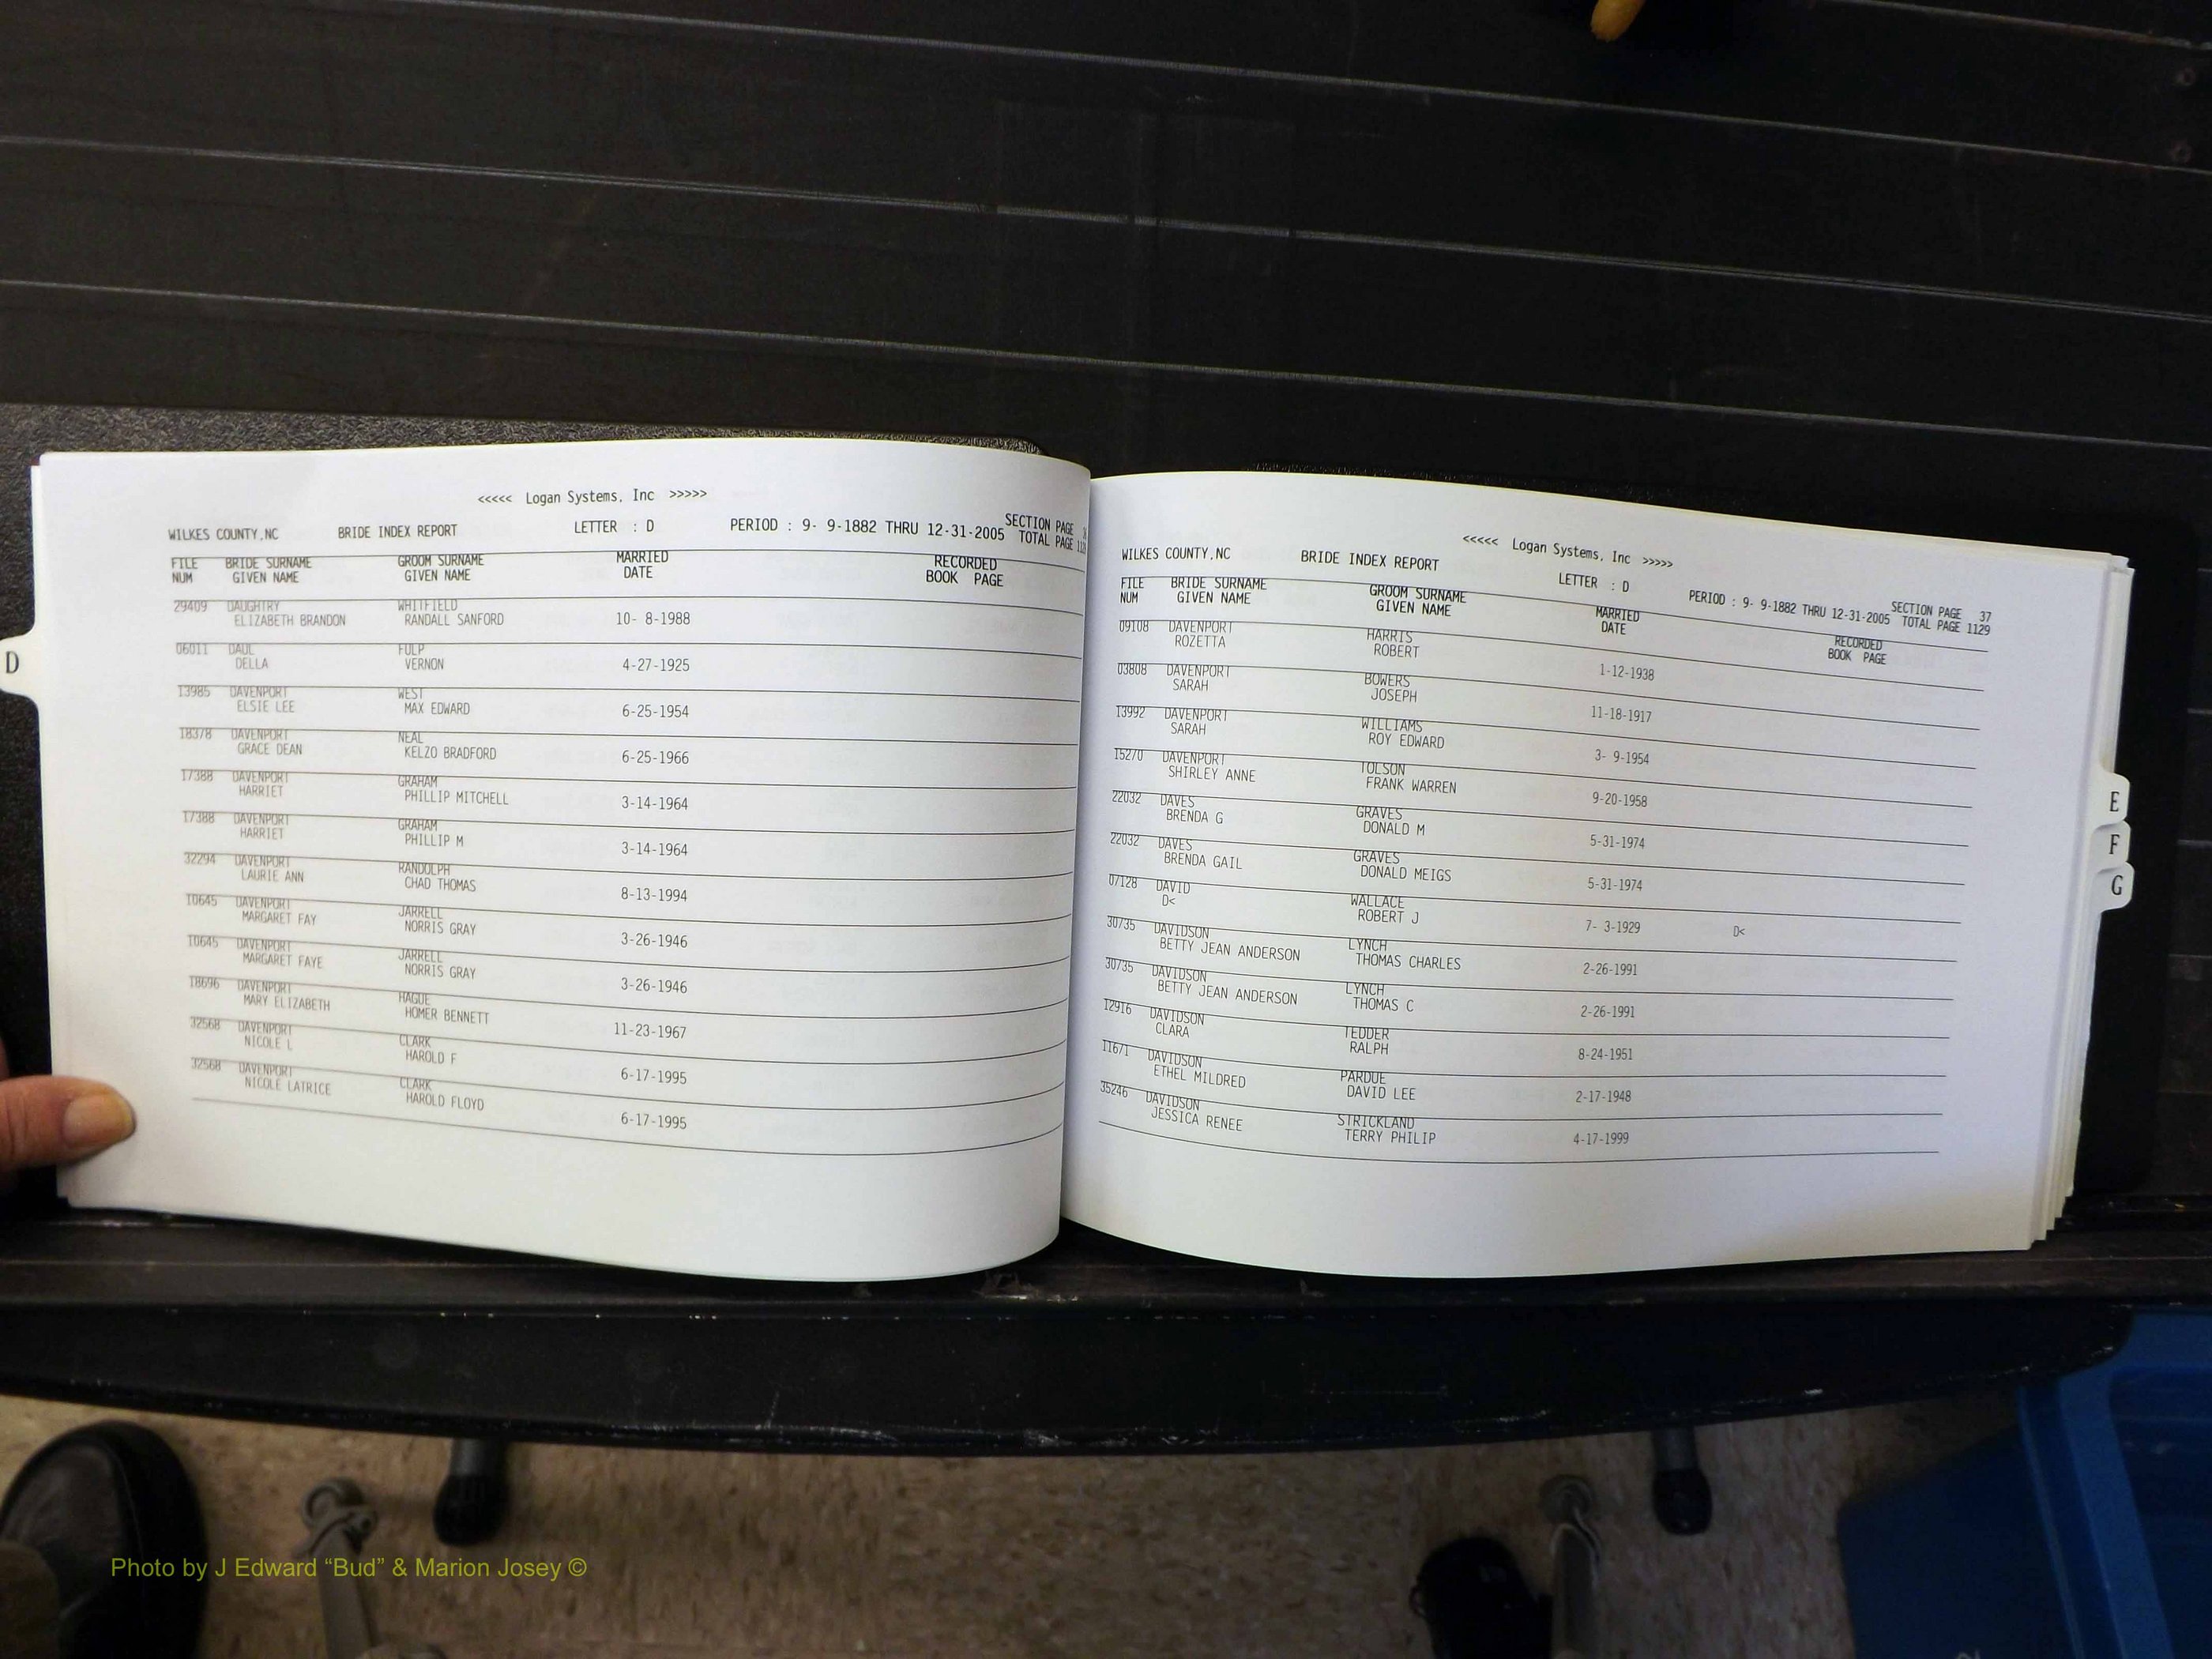 <<<<< Logan Systems, Inc >>>>>
WILKES COUNTY,NC BRIDE INDEX REPORT LETTER : D PERIOD : 9- 9-1882 THRU 12-31-2005 SECTION PAGE
TOTAL PAGE
FILE BRIDE SURNAME GROOM SURNAME MARRIED RECORDED
NUM GIVEN NAME GIVEN NAME DATE BOOK PAGE
29409 DAUGHTRY WHITFIELD
ELIZABETH BRANDON RANDALL SANFORD 10- 8-1988
06011 DAUL FULP
DELLA VERNON 4-27-1925
13985 DAVENPORT WEST
ELSIE LEE MAX EDWARD 6-25-1954
18378 DAVENPORT NEAL
GRACE DEAN KELZO BRADFORD 6-25-1966
17388 DAVENPORT GRAHAM
HARRIET PHILLIP MITCHELL 3-14-1964
17388 DAVENPORT GRAHAM
HARRIET PHILLIP M 3-14-1964
32294 DAVENPORT RANDOLPH
LAURIE ANN CHAD THOMAS 8-13-1994
10645 DAVENPORT JARRELL
MARGARET FAY NORRIS GRAY 3-26-1946
10645 DAVENPORT JARRELL
MARGARET FAYE NORRIS GRAY 3-26-1946
18696 DAVENPORT HAGUE
MARY ELIZABETH HOMER BENNETT 11-23-1967
32568 DAVENPORT CLARK
NICOLE L HAROLD F 6-17-1995
32568 DAVENPORT CLARK
NICOLE LATRICE HAROLD FLOYD 6-17-1995
D
<<<<< Logan Systems, Inc >>>>>
WILKES COUNTY,NC BRIDE INDEX REPORT LETTER : D PERIOD : 9- 9-1882 THRU 12-31-2005 SECTION PAGE 37
TOTAL PAGE 1129
FILE BRIDE SURNAME GROOM SURNAME MARRIED RECORDED
NUM GIVEN NAME GIVEN NAME DATE BOOK PAGE
09108 DAVENPORT HARRIS
ROZETTA ROBERT 1-12-1938
03808 DAVENPORT BOWERS
SARAH JOSEPH 11-18-1917
13992 DAVENPORT WILLIAMS
SARAH ROY EDWARD 3- 9-1954
15270 DAVENPORT TOLSON
SHIRLEY ANNE FRANK WARREN 9-20-1958
22032 DAVES GRAVES
BRENDA G DONALD M 5-31-1974
22032 DAVES GRAVES
BRENDA GAIL DONALD MEIGS 5-31-1974
07128 DAVID WALLACE
D< ROBERT J 7- 3-1929 D<
30735 DAVIDSON LYNCH
BETTY JEAN ANDERSON THOMAS CHARLES 2-26-1991
30735 DAVIDSON LYNCH
BETTY JEAN ANDERSON THOMAS C 2-26-1991
12916 DAVIDSON TEDDER
CLARA RALPH 8-24-1951
11671 DAVIDSON PARDUE
ETHEL MILDRED DAVID LEE 2-17-1948
35246 DAVIDSON STRICKLAND
JESSICA RENEE TERRY PHILIP 4-17-1999
E
F
G
Photo by J Edward “Bud” & Marion Josey ©